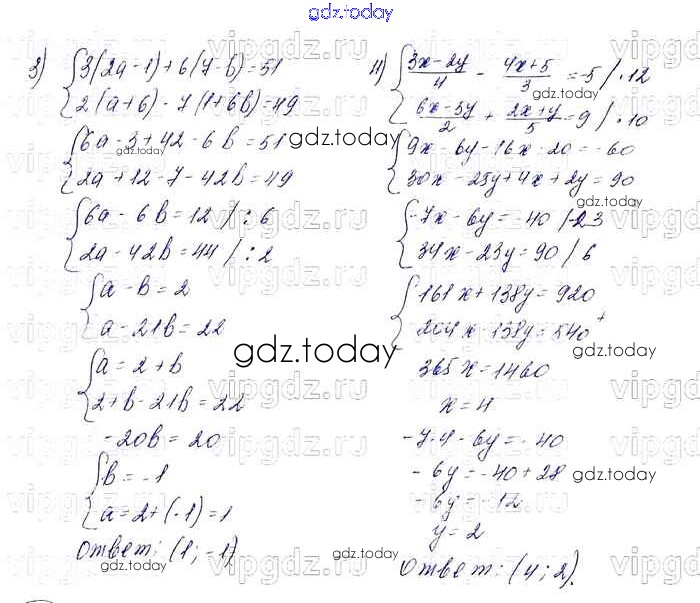 gdz.today
3) { 3(2a-1)+6(7-b)=51
2(a+6)-7(1+6b)=49
{ 6a-3+42-6b=51
2a+12-7-42b=49
{ 6a-6b=12 / :6
2a-42b=44 / :2
{ a-b=2
a-21b=22
{ a=2+b
2+b-21b=22
-20b=20
{ b=-1
a=2+(-1)=1
Ответ: (1;-1).
11) { (3x-2y)/4 - (4x+5)/3 = -5 / ·12
(6x-5y)/2 + (2x+y)/5 = 9 / ·10
{ 9x-6y-16x-20=-60
30x-25y+4x+2y=90
{ -7x-6y=-40 /-23
34x-23y=90 / 6
{ 161x+138y=920
204x-138y=540 +
365x=1460
x=4
-7·4-6y=-40
-6y=-40+28
-6y=-12
y=2
Ответ: (4;2).
gdz.today
gdz.today
gdz.today
gdz.today
gdz.today
gdz.today
gdz.today
gdz.today
gdz.today
gdz.today